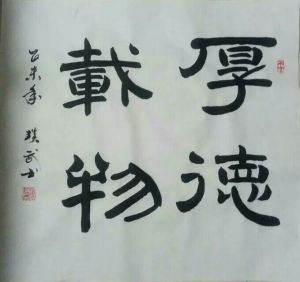 厚德
載物
乙未年 璞武书